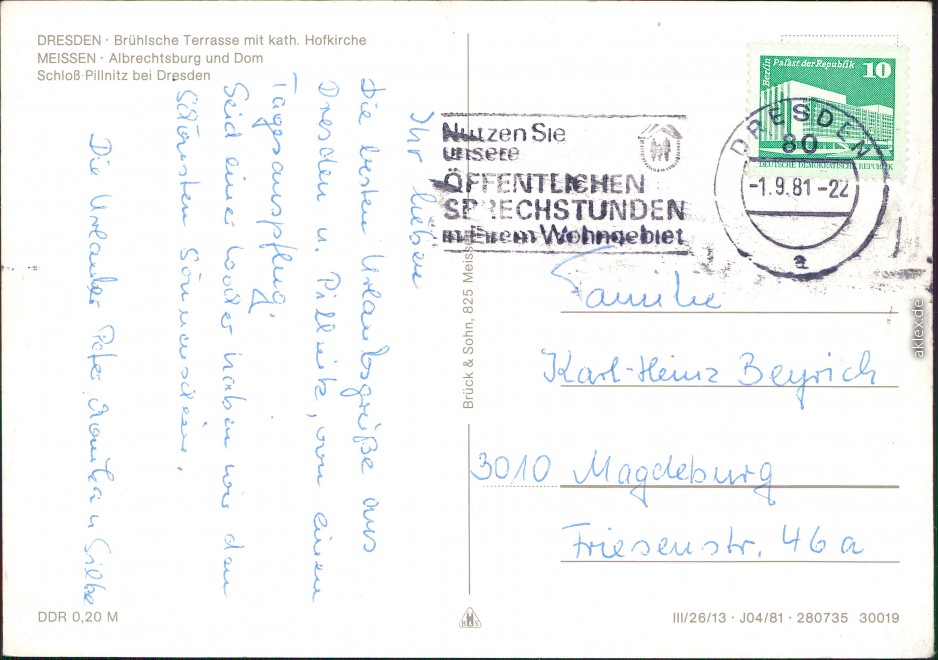 DRESDEN · Brühlsche Terrasse mit kath. Hofkirche
MEISSEN · Albrechtsburg und Dom
Schloß Pillnitz bei Dresden
Ihr lieben
Die besten Urlaubsgrüße aus
Dresden u. Pillnitz, von einen
Tagesauspflug.
Seid einer Woche haben wir den
schönsten Sonnenschein.
Die Urlauber Peter, Monika u Silke
DDR 0,20 M
Brück & Sohn, 825 Meiss
Nutzen Sie
unsere
ÖFFENTLICHEN
SPRECHSTUNDEN
in Ihrem Wohngebiet
Berlin Palast der Republik 10
DEUTSCHE DEMOKRATISCHE REPUBLIK
DRESDEN
80
-1.9.81-22
a
Familie
Karl-Heinz Beyrich
3010 Magdeburg
Friesenstr. 46a
III/26/13 · J04/81 · 280735 30019
akleX.de